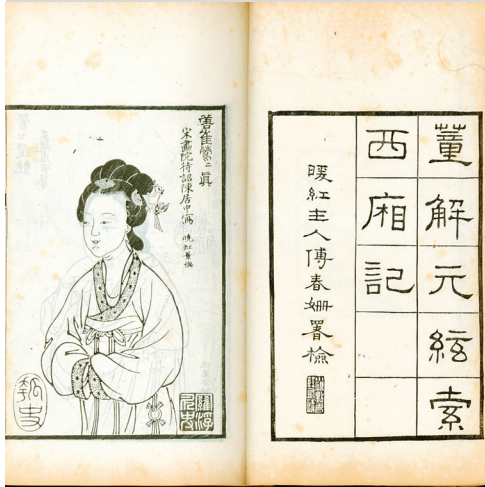 董解元絃索
西廂記
暖紅主人傅春姍署檢
唐崔鶯〻真
宋畫院待詔陳居中寫